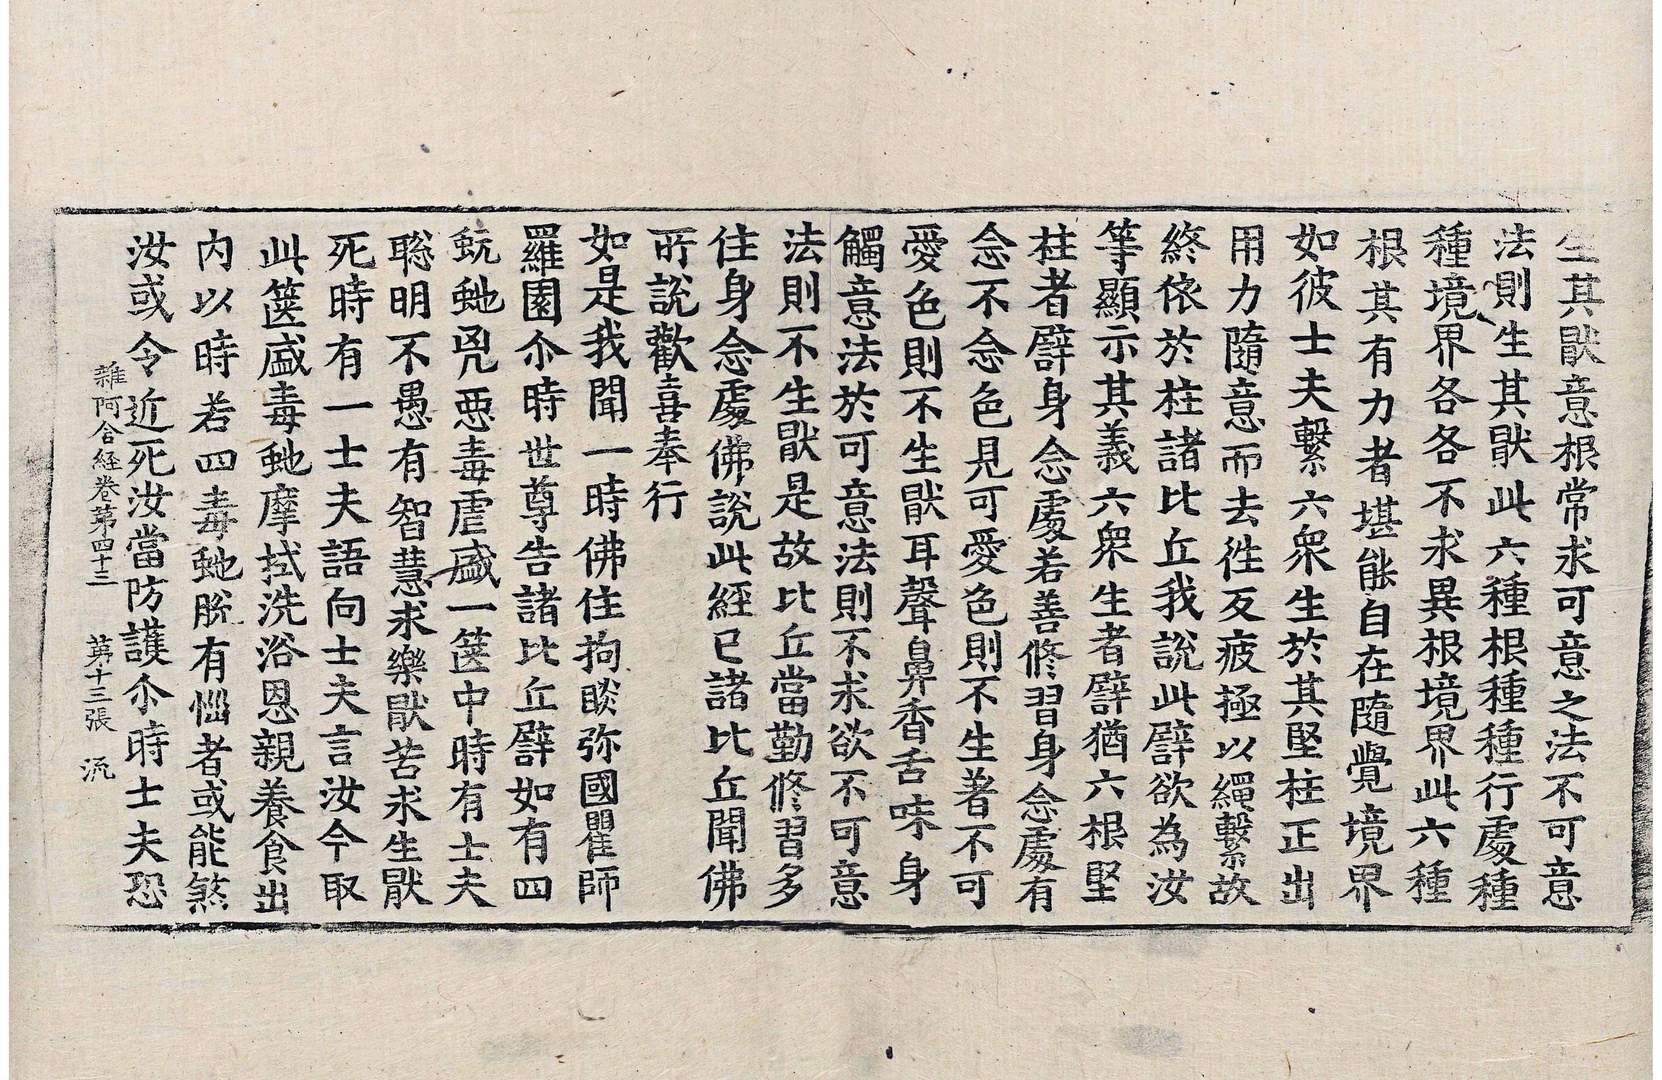 生其厭意根常求可意之法不可意
法則生其厭此六種根種種行處種
種境界各各不求異根境界此六種
根其有力者堪能自在隨覺境界
如彼士夫繫六衆生於其堅柱正出
用力隨意而去徃反疲極以繩繫故
終依於柱諸比丘我說此譬欲為汝
等顯示其義六衆生者譬猶六根堅
柱者譬身念處若善修習身念處有
念不念色見可愛色則不生著不可
愛色則不生厭耳聲鼻香舌味身
觸意法於可意法則不求欲不可意
法則不生厭是故比丘當勤修習多
住身念處佛說此經已諸比丘聞佛
所說歡喜奉行
如是我聞一時佛住拘睒弥國瞿師
羅園尒時世尊告諸比丘譬如有四
蚖虵兇惡毒虐盛一篋中時有士夫
聡明不愚有智慧求樂厭苦求生厭
死時有一士夫語向士夫言汝今取
此篋盛毒虵摩拭洗浴恩親養食出
内以時若四毒虵脫有惱者或能煞
汝或令近死汝當防護尒時士夫恐
雜阿含經卷第四十三　第十三張　流